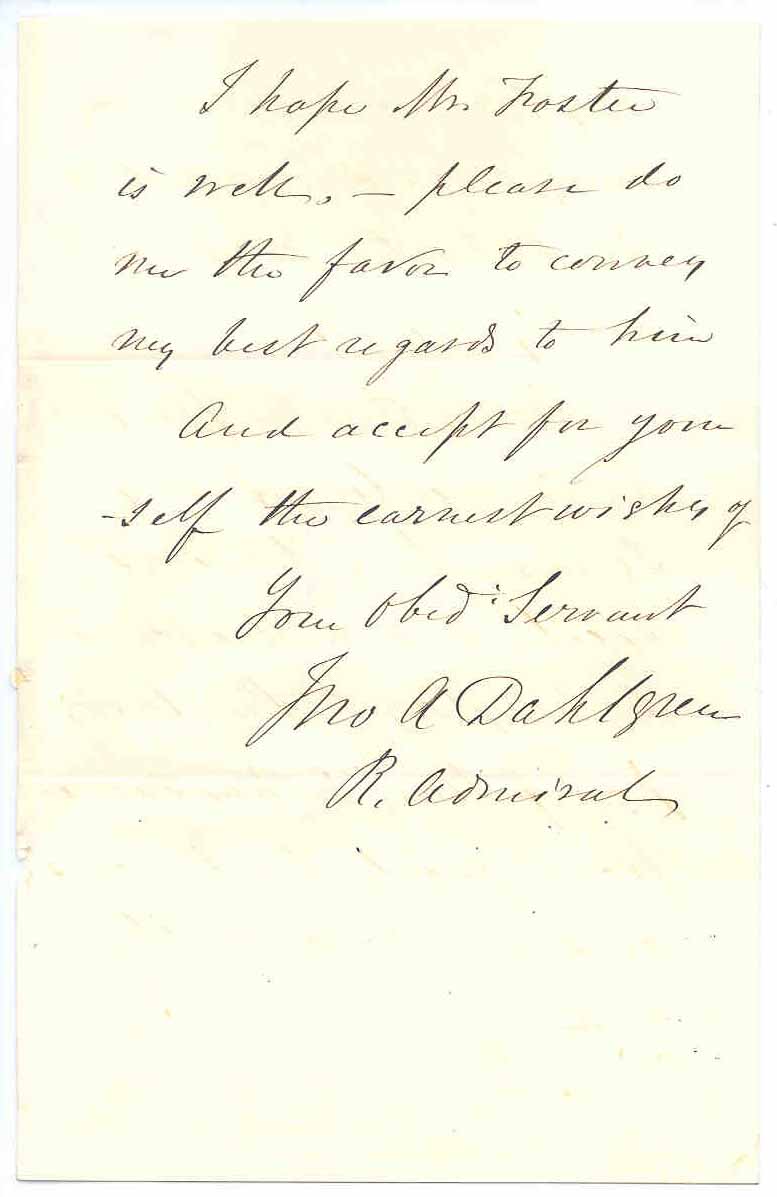 I hope Mr. Foster
is well. — please do
me the favor to convey
my best regards to him
And accept for your
-self the earnest wishes of
Your Obed.t Servant
Jno A Dahlgren
R. Admiral